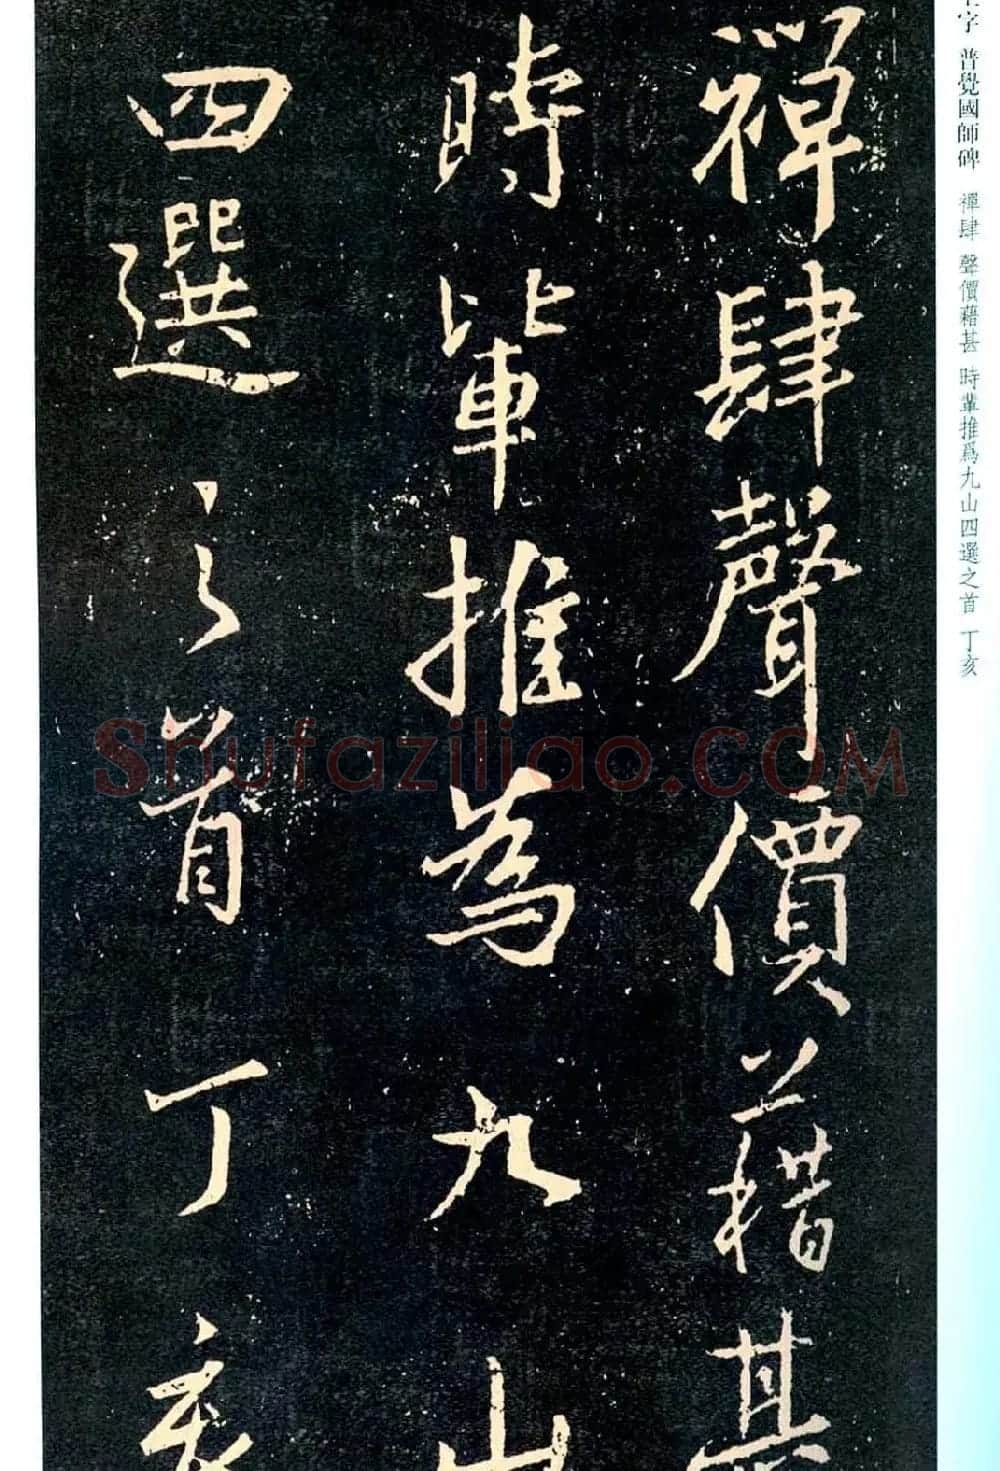 禪肆聲價藉甚
時輩推為九山
四選之首丁亥
字 普覺國師碑 禪肆 聲價藉甚 時輩推爲九山四選之首 丁亥
Shufaziliao.COM